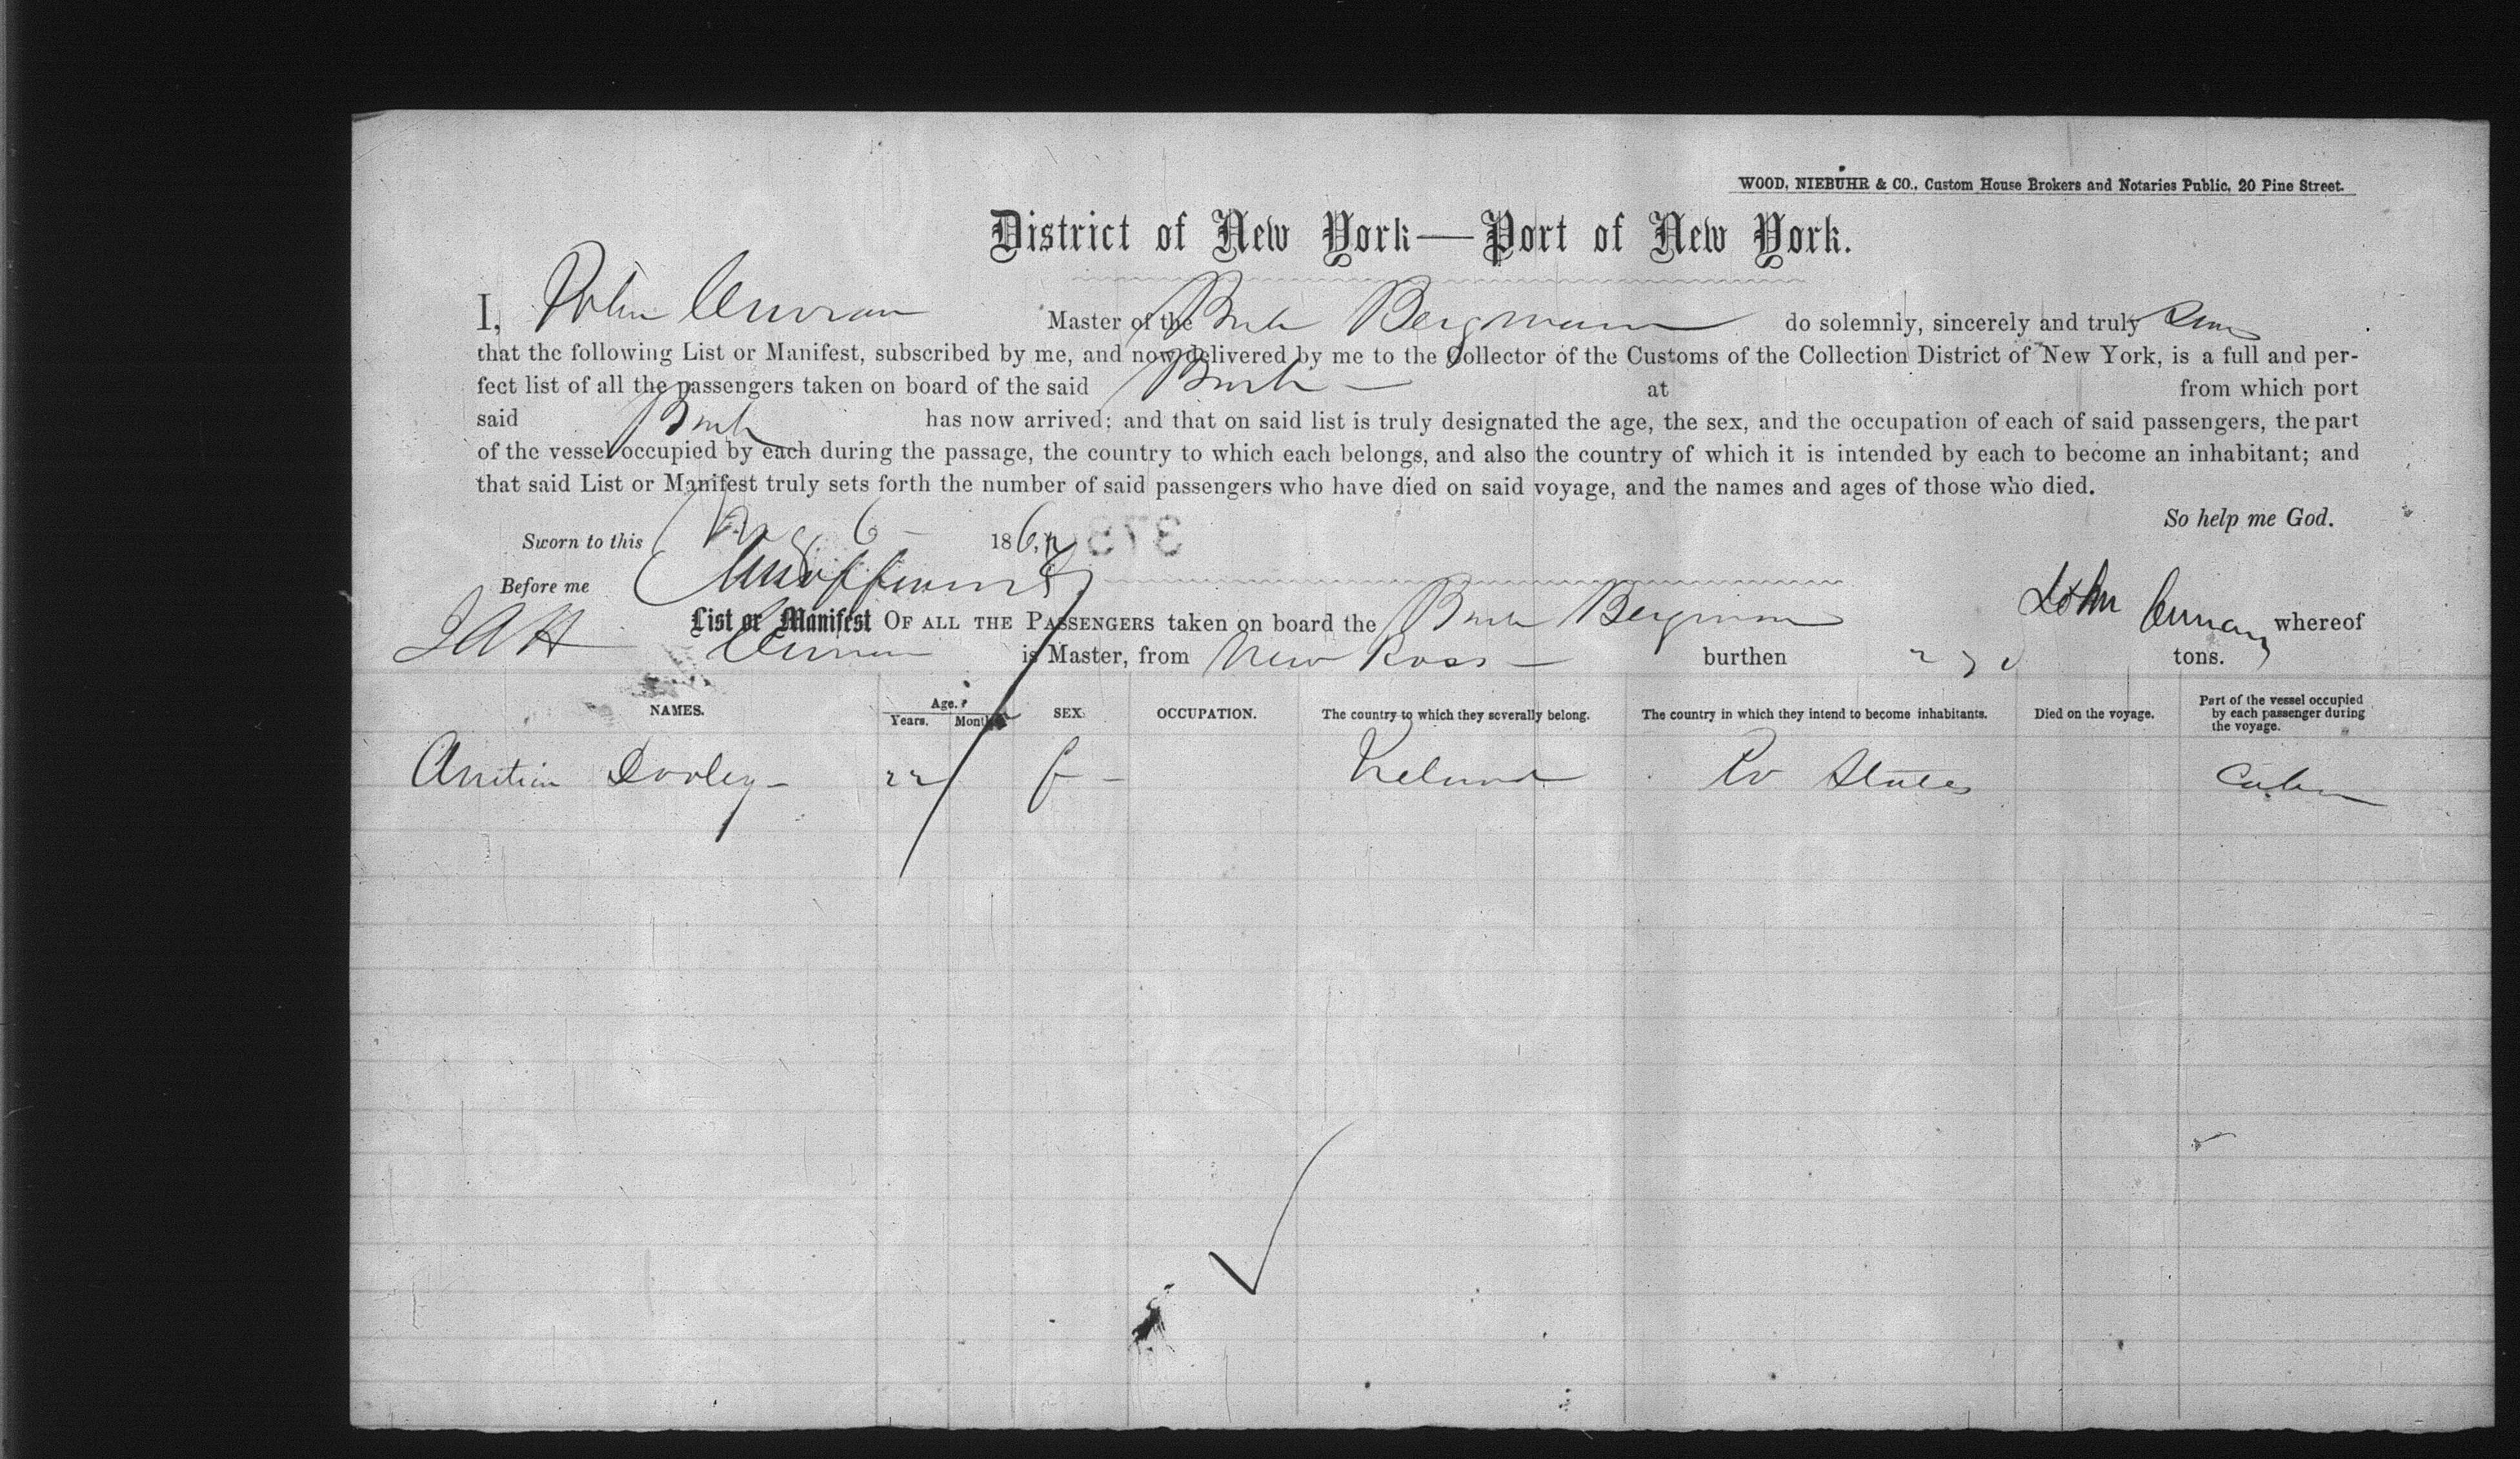 WOOD, NIEBUHR & CO., Custom House Brokers and Notaries Public, 20 Pine Street.
District of New York—Port of New York.
I, John Curran Master of the Bark Bergmann do solemnly, sincerely and truly
that the following List or Manifest, subscribed by me, and now delivered by me to the Collector of the Customs of the Collection District of New York, is a full and per-
fect list of all the passengers taken on board of the said Bark — at from which port
said Bark has now arrived; and that on said list is truly designated the age, the sex, and the occupation of each of said passengers, the part
of the vessel occupied by each during the passage, the country to which each belongs, and also the country of which it is intended by each to become an inhabitant; and
that said List or Manifest truly sets forth the number of said passengers who have died on said voyage, and the names and ages of those who died.
So help me God.
Sworn to this Aug 6 - 186
Before me
John Curran
List or Manifest OF ALL THE PASSENGERS taken on board the Bark Bergmann whereof
Curran is Master, from New Ross — burthen tons.
NAMES. Age. Years. Months SEX. OCCUPATION. The country to which they severally belong. The country in which they intend to become inhabitants. Died on the voyage. Part of the vessel occupied by each passenger during the voyage.
Dooley - 22 f - Ireland States Cabin